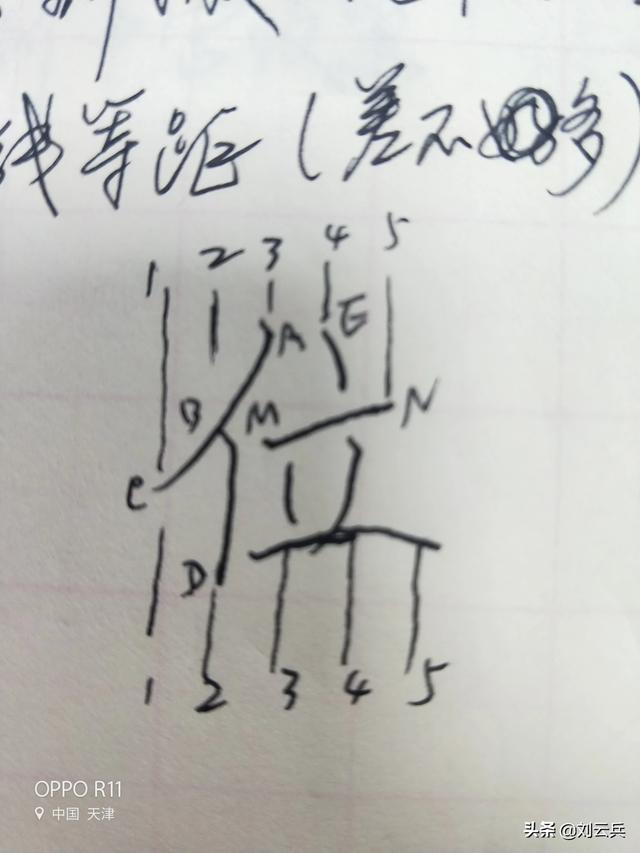 线等距（差不多）
1 2 3 4 5
A E
B M N
C
仕
D
1 2 3 4 5
OPPO R11
中国 天津
头条 @刘云兵